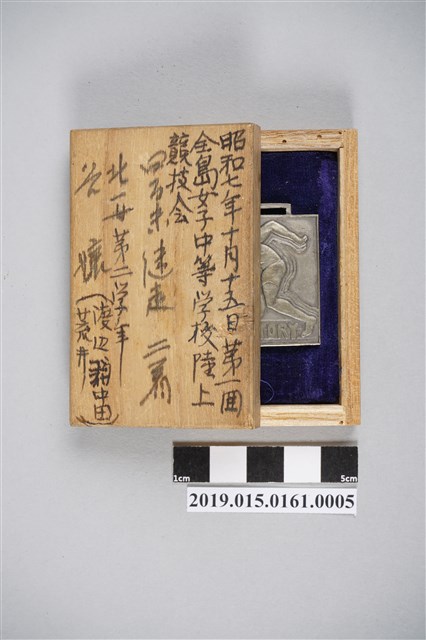 昭和七年十月十五日第一回
全島女子中等学校陸上
競技会
四百米継走 二着
北一女第二学年
谷 
(渡辺 田中
荒井)
VICTORY
1cm
5cm
2019.015.0161.0005